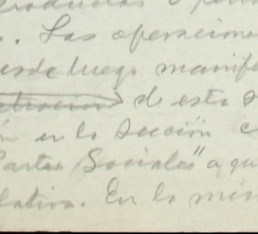 . Las operacione
desde luego manife
de esta s
ón en la Sección c
Partes Sociales" a qu
lativa. En la mis